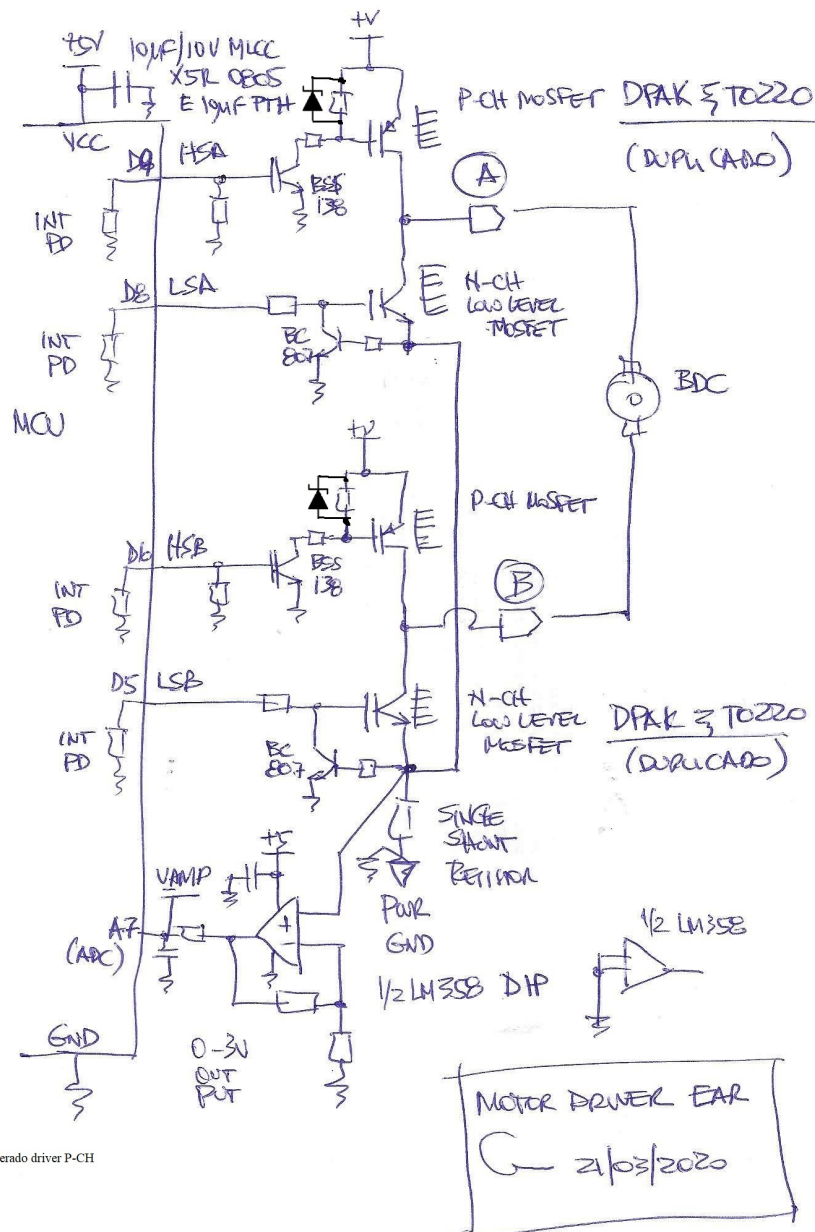 +5V
10µF/10V MLCC
X5R 0805
E 10µF PTH
VCC
+V
P-CH MOSFET
DPAK & TO220
(DUPLICADO)
D9
HSA
BSS
138
INT
PD
A
D8
LSA
N-CH
LOW LEVEL
MOSFET
BC
807
INT
PD
BDC
MCU
+V
P-CH MOSFET
D6
HSB
BSS
138
INT
PD
B
D5
LSB
N-CH
LOW LEVEL
MOSFET
DPAK & TO220
(DUPLICADO)
BC
807
INT
PD
SINGLE
SHUNT
RESISTOR
+5
VAMP
A7
(ADC)
+
-
PWR
GND
1/2 LM358 DIP
1/2 LM358
GND
0-3V
OUT
PUT
MOTOR DRIVER EAR
21/03/2020
erado driver P-CH